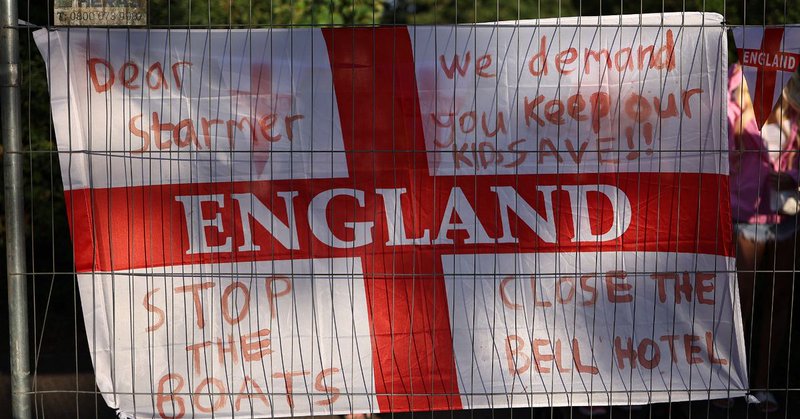 T. 0800 073 9992
Dear
Starmer
We demand
you keep our
KIDS SAVE!!
ENGLAND
ENGLAND
STOP
THE
BOATS
CLOSE THE
BELL HOTEL